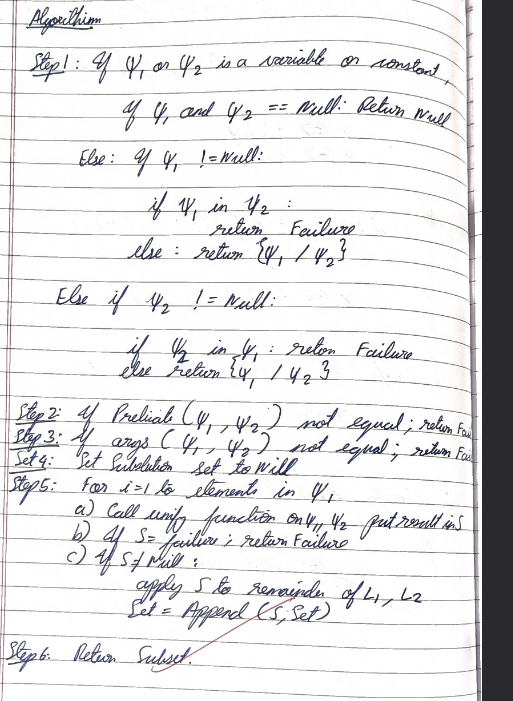 Algorithim
Step 1: If Ψ1 or Ψ2 is a variable or constant,
if Ψ1 and Ψ2 == Null: Return Null
Else: If Ψ1 != Null:
if Ψ1 in Ψ2 :
return Failure
else : return {Ψ1 / Ψ2}
Else if Ψ2 != Null:
if Ψ2 in Ψ1 : return Failure
else return {Ψ1 / Ψ2}
Step 2: If Predicate (Ψ1, Ψ2) not equal; return Fai
Step 3: If args (Ψ1, Ψ2) not equal; return Fai
Set 4: Set Substution set to Nill
Step 5: For i=1 to elements in Ψ1
a) Call unify function on Ψ1, Ψ2 put result in S
b) If S = failure; return Failure
c) If S ≠ Null :
apply S to remainder of L1, L2
Set = Append (S, Set)
Step 6: Return Subset.